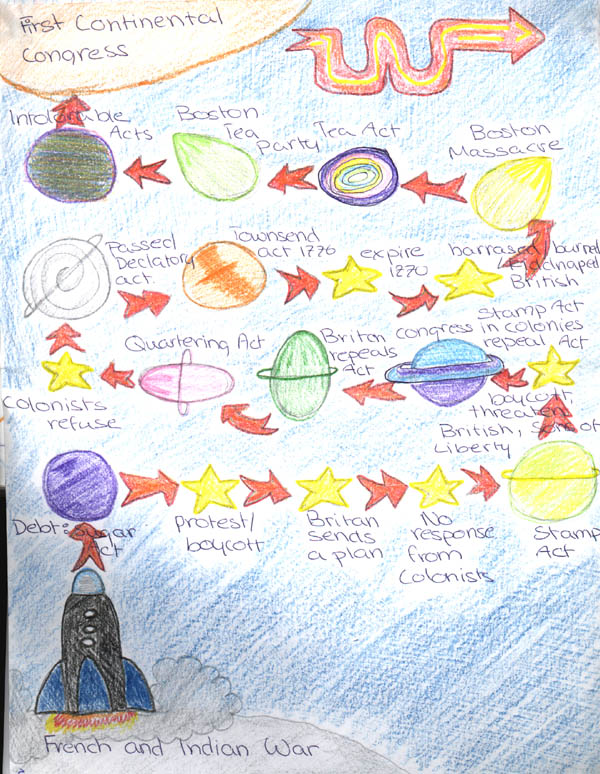 First Continental
Congress
Intolerable
Acts
Boston
Tea
Party
Tea Act
Boston
Massacre
Passed
Declatory
act
Townsend
act 1776
expire
1770
harrased, burned
kidnaped
British
Colonists
refuse
Quartering Act
Britan
repeals
Act
congress
Stamp Act
in colonies
repeal Act
boycott,
threaten
British, sons of
Liberty
Debt: Sugar
Act
protest/
boycott
Britan
sends
a plan
No
response
from
Colonists
Stamp
Act
French and Indian War